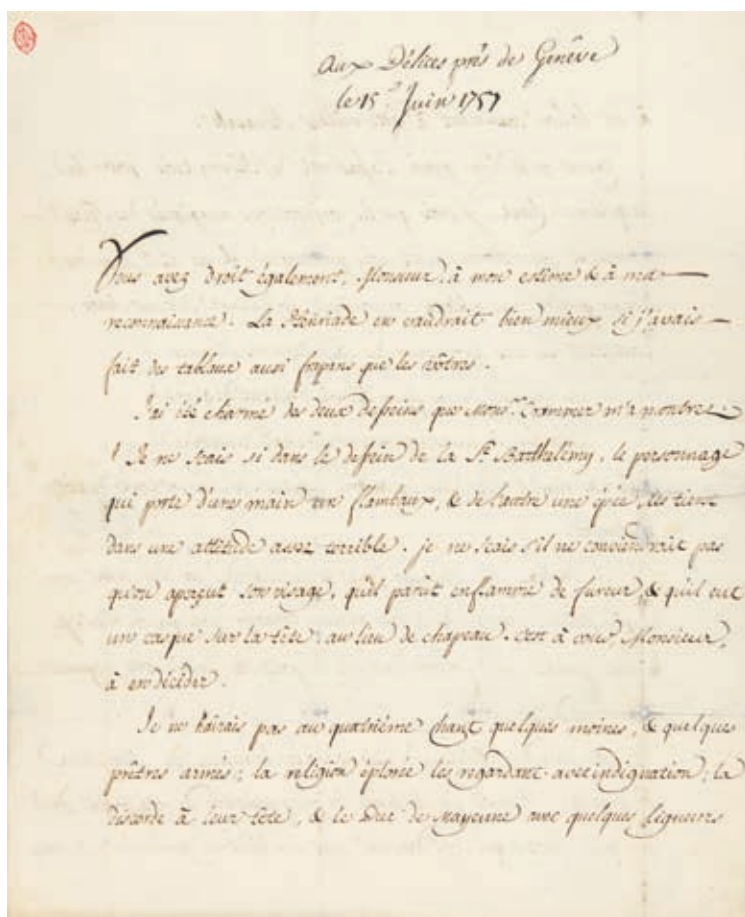 Aux Délices près de Genêve
le 15e. Juin 1757
Vous avez droit également, Monsieur, à mon estime & à ma
reconnaissance. La Henriade en vaudrait bien mieux si j'avais
fait des tablaux aussi frapans que les vôtres.
J'ai été charmé des deux desseins que Monsr. Crammer m'a montrez.
Je ne scais si dans le dessein de la St. Barthelémy, le personnage
qui porte d'une main un flambaux, & de l'autre une épée, les tient
dans une attitude assez terrible. je ne scais s'il ne conviendrait pas
qu'on aperçut son visage, qu'il parût enflammé de fureur, & qu'il eut
un casque sur la tête au lieu de chapeau. c'est à vous, Monsieur,
à en décider.
Je ne haïrais pas au quatrième chant quelques moines, & quelques
prêtres armés; la religion éplorée les regardant avec indignation; la
discorde à leur tête, & le Duc de Mayenne avec quelques ligueurs